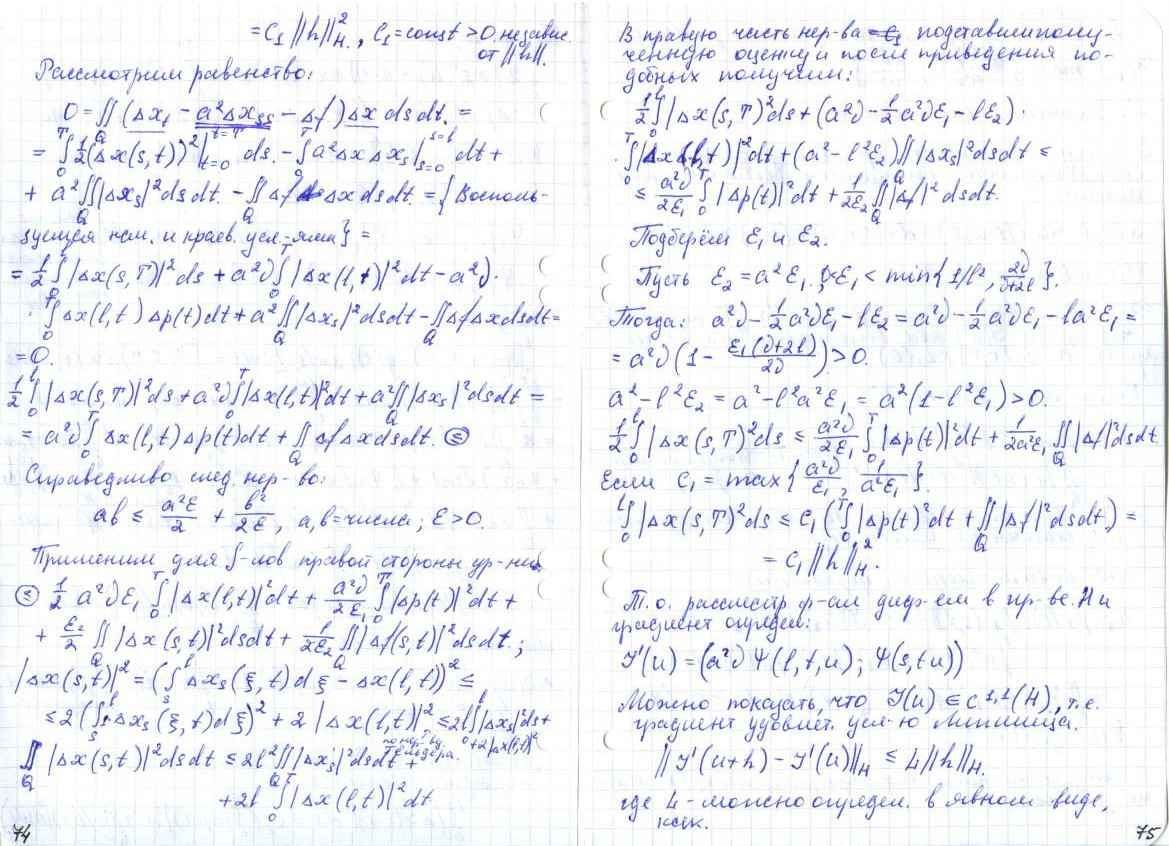 = C₁ ||h||²_H., C₁ = const > 0. независ.
от ||h||.
Рассмотрим равенство:
0 = ∬_Q (Δx_t - a²Δx_ss - Δf) Δx ds dt. =
= ∫ ½(Δx(s,t))² |_{t=0}^{t=T} ds. - ∫_0^T a²Δx Δx_s |_{s=0}^{s=l} dt +
+ a² ∬_Q |Δx_s|² ds dt. - ∬_Q Δf Δx ds dt. = { Восполь-
зуемся нач. и краев. усл-ями } =
= ½ ∫_0^l |Δx(s,T)|² ds + a²ν ∫_0^T |Δx(l,t)|² dt - a²ν.
· ∫_0^T Δx(l,t) Δp(t) dt + a² ∬_Q |Δx_s|² ds dt - ∬_Q Δf Δx ds dt =
= 0.
½ ∫_0^l |Δx(s,T)|² ds + a²ν ∫_0^T |Δx(l,t)|² dt + a² ∬_Q |Δx_s|² ds dt =
= a²ν ∫_0^T Δx(l,t) Δp(t) dt + ∬_Q Δf Δx ds dt. ≤
Справедливо след. нер-во:
ab ≤ a²ε/2 + b²/2ε, a,b - числа; ε > 0.
Применим для ∫-лов правой стороны ур-ния
≤ ½ a²ν ε₁ ∫_0^T |Δx(l,t)|² dt + a²ν/2ε₁ ∫_0^T |Δp(t)|² dt +
+ ε₂/2 ∬_Q |Δx(s,t)|² ds dt + 1/2ε₂ ∬_Q |Δf(s,t)|² ds dt.;
|Δx(s,t)|² = (∫_s^l Δx_s(ξ,t) dξ - Δx(l,t))² ≤
≤ 2 (∫_s^l Δx_s(ξ,t) dξ)² + 2 |Δx(l,t)|² ≤ 2l ∫_0^l |Δx_s|² ds +
+ 2 |Δx(l,t)|²
по нер-ву
Гельдера.
∬_Q |Δx(s,t)|² ds dt ≤ 2l² ∬_Q |Δx'_s|² ds dt +
+ 2l ∫_0^T |Δx(l,t)|² dt
74
В правую часть нер-ва подставим полу-
ченную оценку и после приведения по-
добных получим:
½ ∫_0^l |Δx(s,T)² ds + (a²ν - ½ a²ν ε₁ - l ε₂) ·
· ∫_0^T |Δx(l,t)|² dt + (a² - l² ε₂) ∬_Q |Δx_s|² ds dt ≤
≤ a²ν/2ε₁ ∫_0^T |Δp(t)|² dt + 1/2ε₂ ∬_Q |Δf|² ds dt.
Подберём ε₁ и ε₂.
Пусть ε₂ = a² ε₁. 0 < ε₁ < min{ 1/l², 2ν/ν+2l }.
Тогда: a²ν - ½ a²ν ε₁ - l ε₂ = a²ν - ½ a²ν ε₁ - l a² ε₁ =
= a²ν (1 - ε₁(ν+2l)/2ν) > 0.
a² - l² ε₂ = a² - l² a² ε₁ = a² (1 - l² ε₁) > 0.
½ ∫_0^l |Δx(s,T)² ds ≤ a²ν/2ε₁ ∫_0^T |Δp(t)|² dt + 1/2a²ε₁ ∬_Q |Δf|² ds dt
Если C₁ = max { a²ν/ε₁, 1/a²ε₁ }.
∫_0^l |Δx(s,T)² ds ≤ C₁ (∫_0^T |Δp(t)² dt + ∬_Q |Δf|² ds dt.) =
= C₁ ||h||²_H.
Т.о. рассмотр. ф-ал диф-ем в пр-ве H и
градиент определ:
J'(u) = (a²ν Ψ(l,t,u); Ψ(s,t,u))
Можно показать, что J(u) ∈ C^{1,1}(H), т.е.
градиент удовлет. усл-ю Липшица.
||J'(u+h) - J'(u)||_H ≤ L ||h||_H.
где L - можно определ. в явном виде,
как.
75